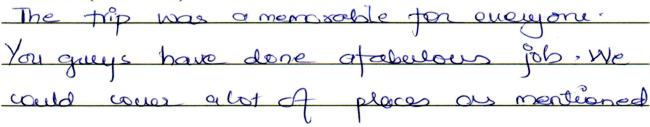 The trip was a memorable for everyone.
You guys have done a fabulous job. We
could cover a lot of places as mentioned